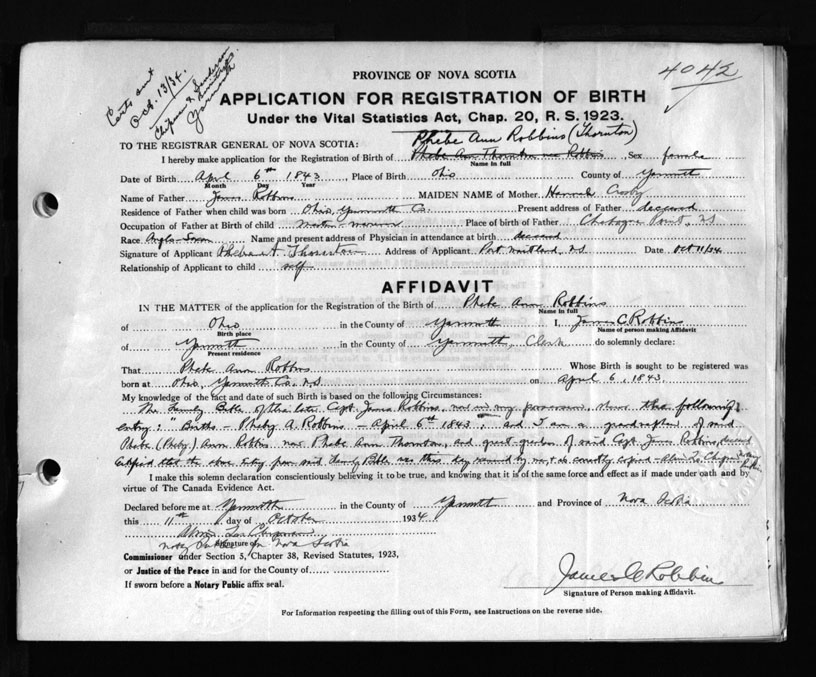 Certs sent
Oct. 13/34.
Chipman & Sanderson
Barristers
Yarmouth
4042
PROVINCE OF NOVA SCOTIA
APPLICATION FOR REGISTRATION OF BIRTH
Under the Vital Statistics Act, Chap. 20, R. S. 1923.
Phebe Ann Robbins (Thornton)
TO THE REGISTRAR GENERAL OF NOVA SCOTIA:
I hereby make application for the Registration of Birth of Phebe Ann Thornton nee Robbins, Sex female
Name in full
Date of Birth April 6th 1843, Place of Birth Ohio County of Yarmouth
Month Day Year
Name of Father James Robbins MAIDEN NAME of Mother Hannah Crosby
Residence of Father when child was born Ohio, Yarmouth Co. Present address of Father deceased
Occupation of Father at Birth of child Master-mariner Place of Birth of Father Chebogue Point, N.S
Race Anglo-Saxon Name and present address of Physician in attendance at birth deceased
Signature of Applicant Phebe A. Thornton Address of Applicant Port Maitland, N.S Date Oct 11/34
Relationship of Applicant to child self
AFFIDAVIT
IN THE MATTER of the application for the Registration of the Birth of Phebe Ann Robbins
Name in full
of Ohio in the County of Yarmouth I, James C. Robbins
Birth place Name of person making Affidavit
of Yarmouth in the County of Yarmouth, Clerk do solemnly declare:
Present residence
That Phebe Ann Robbins Whose Birth is sought to be registered was
born at Ohio, Yarmouth Co. N.S on April 6, 1843.
My knowledge of the fact and date of such Birth is based on the following Circumstances:
The Family Bible of the late Capt. James Robbins, now in my possession, shows the following
entry: "Births - Pheby A. Robbins - April 6th 1843", and I am a grandnephew of said
Phebe (Pheby) Ann Robbins now Phebe Ann Thornton, and great grandson of said Capt. James Robbins, deceased
Certified that the above entry from said Family Bible was this day examined by me & is correctly copied
I make this solemn declaration conscientiously believing it to be true, and knowing that it is of the same force and effect as if made under oath and by
virtue of The Canada Evidence Act.
Declared before me at Yarmouth in the County of Yarmouth and Province of Nova Scotia
this 11th day of October 1934
Chipman
Notary Public in Nova Scotia
Signature of
Commissioner under Section 5, Chapter 38, Revised Statutes, 1923,
or Justice of the Peace in and for the County of
If sworn before a Notary Public affix seal.
James C Robbins
Signature of Person making Affidavit.
For Information respecting the filling out of this Form, see Instructions on the reverse side.